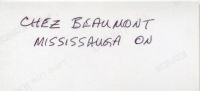 CHEZ BEAUMONT
MISSISSAUGA ON